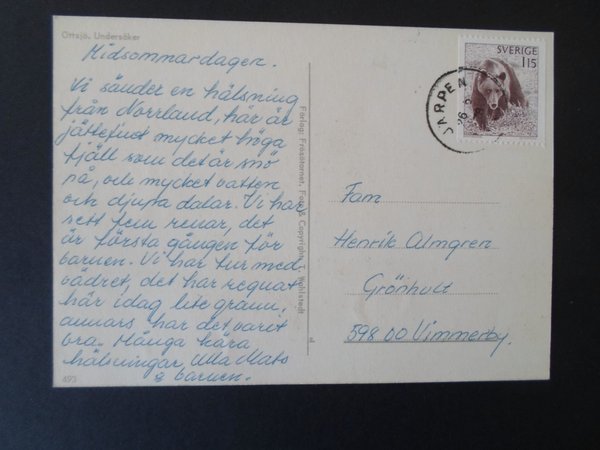 Ottsjö, Undersåker
Midsommardagen.
Vi sänder en hälsning
från Norrland, här är
jättefint mycket höga
fjäll som det är snö
på, och mycket vatten
och djupa dalar. Vi har
sett fem renar, det
är första gången för
barnen. Vi har tur med
vädret, det har regnat
här idag lite grann,
annars har det varit
bra. Många kära
hälsningar Ulla Mats
& barnen.
493
Förlag: Frösötornet. Foto & Copyright: T. Wohlstedt
SVERIGE
115
JÄRPEN
Fam
Henrik Almgren
Grönhult
598 00 Vimmerby.